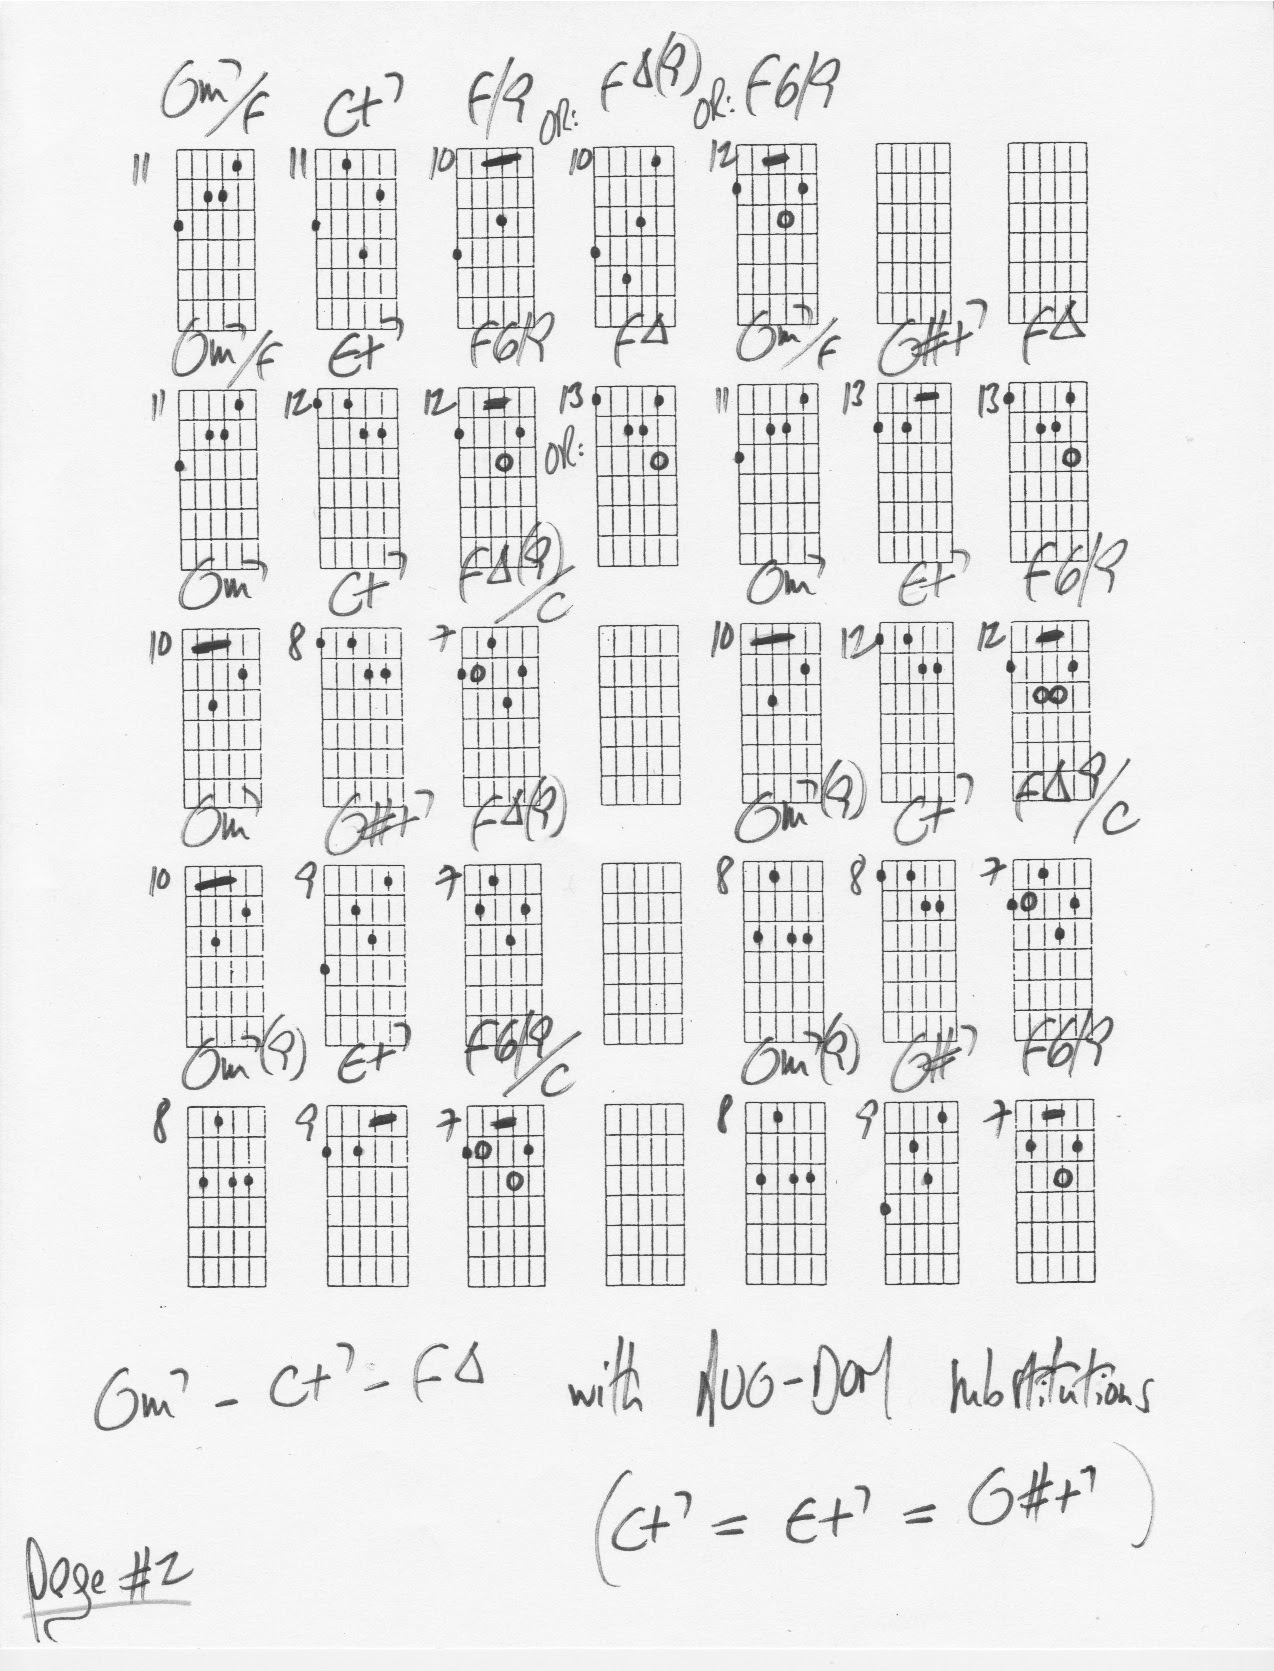 Gm7/F C+7 F/9 OR: FΔ(9) OR: F6/9
11 11 10 10 12
Gm7/F E+7 F6/9 FΔ Gm7/F G#+7 FΔ
11 12 12 OR: 13 11 13 13
Gm7 C+7 FΔ(9)/C Gm7 E+7 F6/9
10 8 7 10 12 12
Gm7 G#+7 FΔ(9) Gm7(9) C+7 FΔ9/C
10 9 7 8 8 7
Gm7(9) E+7 F6/9/C Gm7(9) G#7 F6/9
8 9 7 8 9 7
Gm7 - C+7 - FΔ with AUG-DOM substitutions
(C+7 = E+7 = G#+7)
Page #2